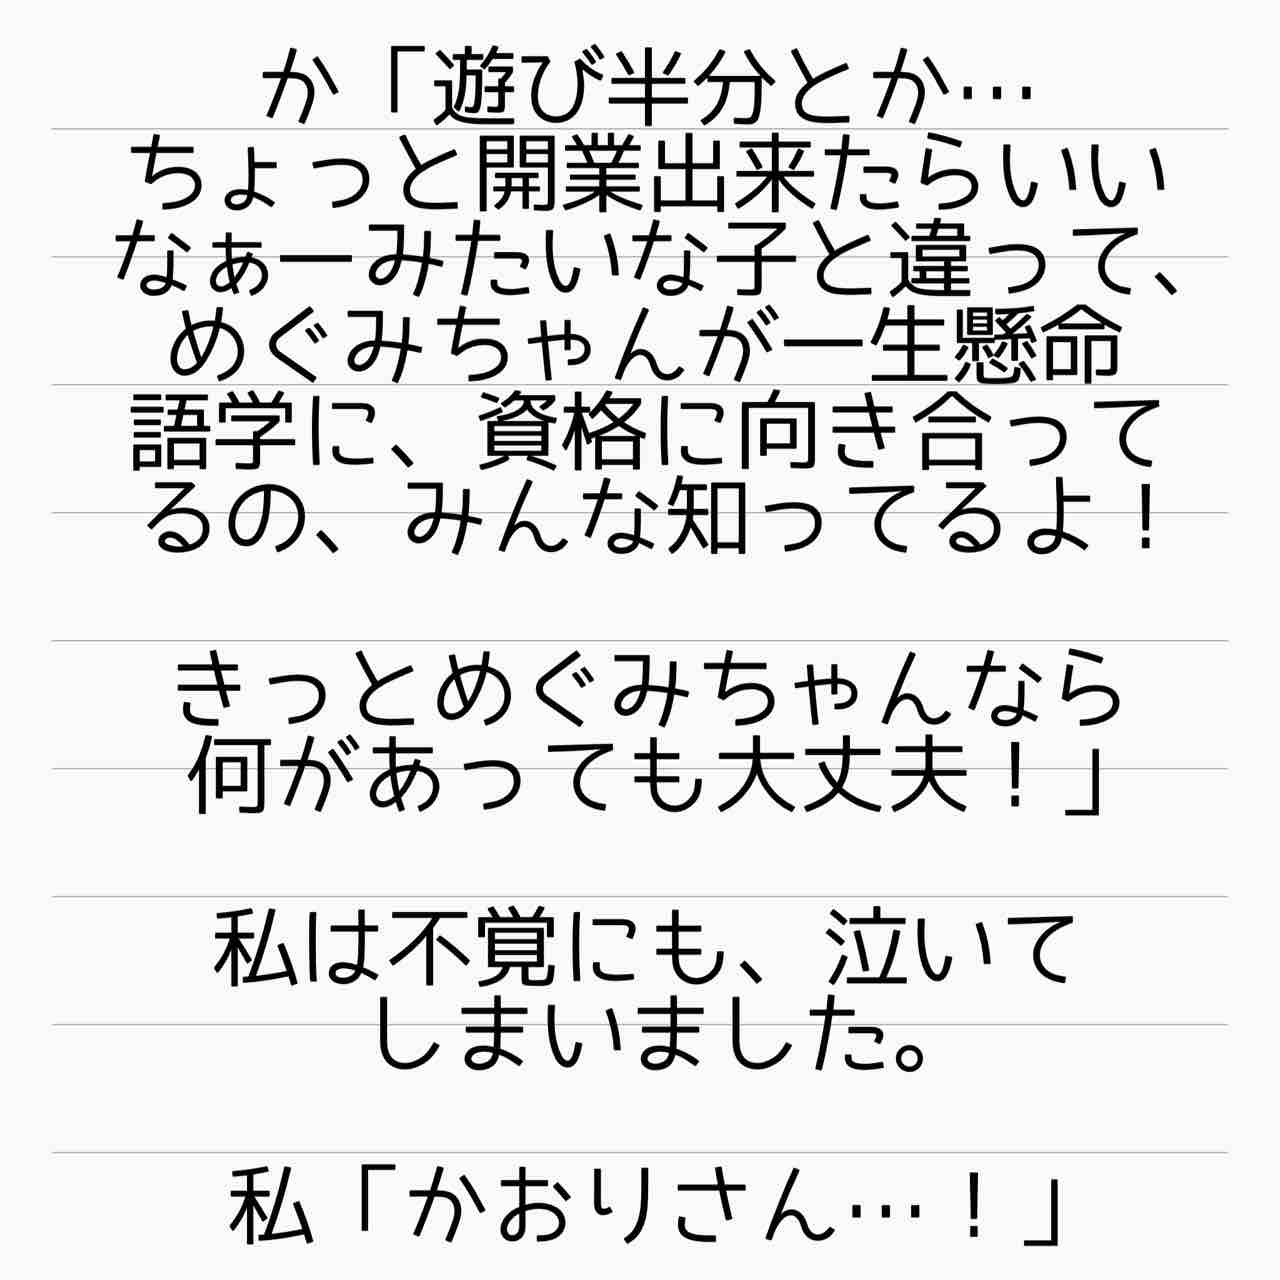 か「遊び半分とか…
ちょっと開業出来たらいい
なぁーみたいな子と違って、
めぐみちゃんが一生懸命
語学に、資格に向き合って
るの、みんな知ってるよ！
きっとめぐみちゃんなら
何があっても大丈夫！」
私は不覚にも、泣いて
しまいました。
私「かおりさん…！」